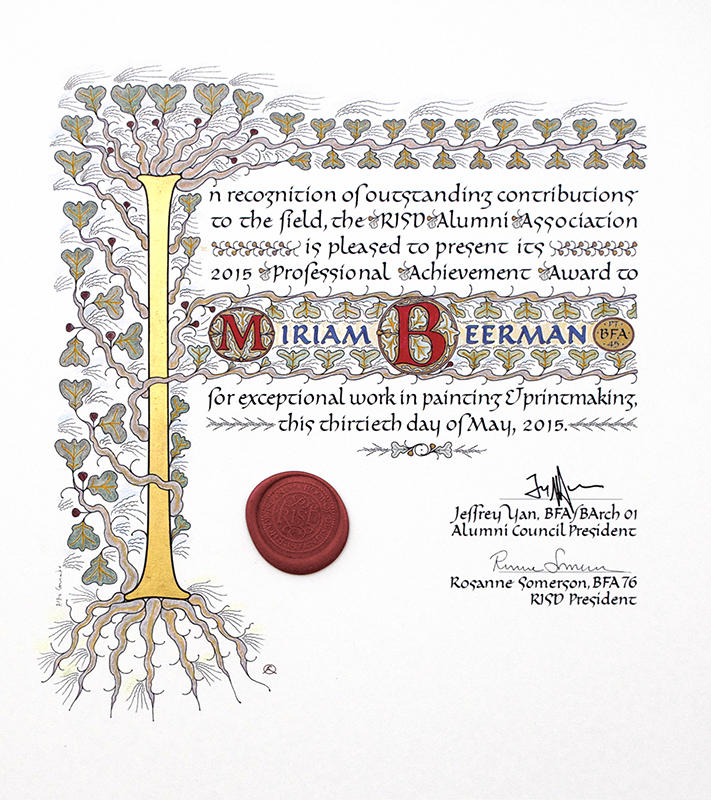 In recognition of outstanding contributions
to the field, the RISD Alumni Association
is pleased to present its
2015 Professional Achievement Award to
MIRIAM BEERMAN PT BFA 45
for exceptional work in painting & printmaking,
this thirtieth day of May, 2015.
RISD
Jeffrey Yan, BFA/BArch 01
Alumni Council President
Rosanne Somerson, BFA 76
RISD President